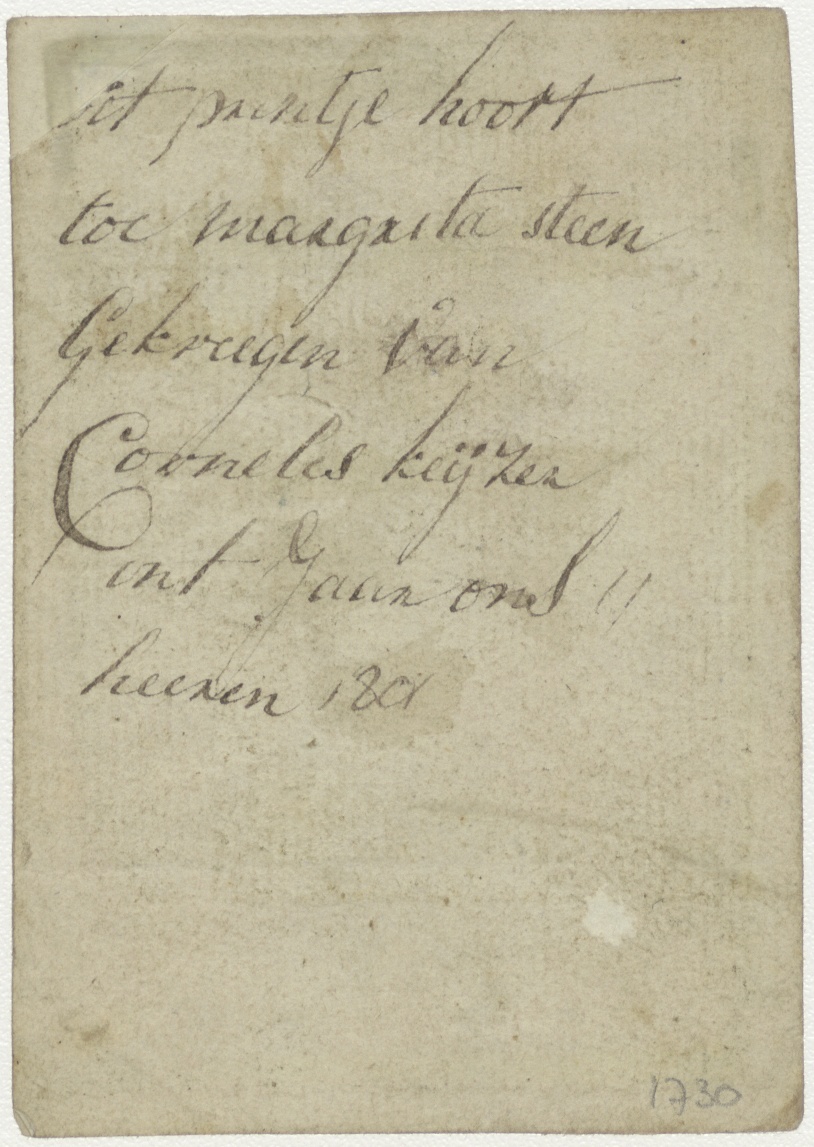 dit printje hoort
toe margrita steen
Gekreegen van
Corneles keÿzer
int Jaar ons "
heeren 1801
1730